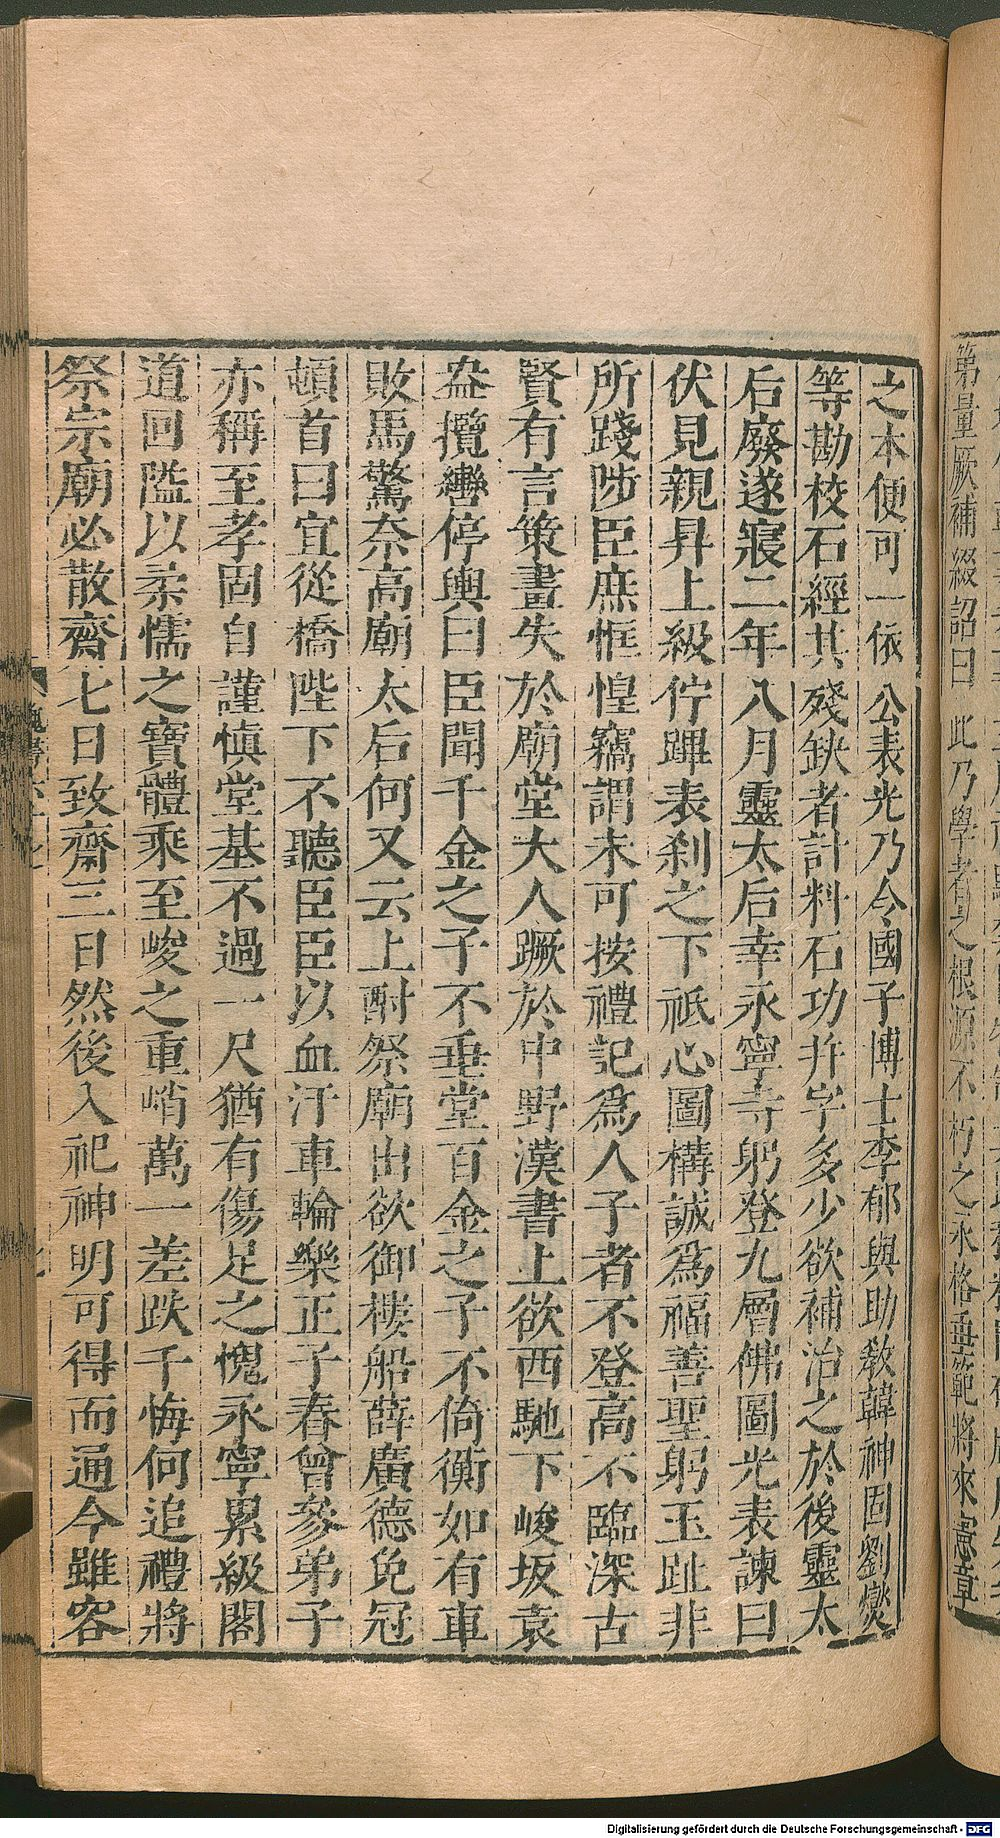 第量厥補綴詔曰此乃學者之根源不朽之永格垂範將來憲章
之本便可一依公表光乃令國子博士李郁與助教韓神固劉燮
等勘校石經其殘缺者計料石功并字多少欲補治之於後靈太
后廢遂寢二年八月靈太后幸永寧寺躬登九層佛圖光表諫曰
伏見親昇上級佇蹕表刹之下祗心圖構誠為福善聖躬玉趾非
所踐陟臣庶恇惶竊謂未可按禮記為人子者不登高不臨深古
賢有言策畫失於廟堂大人蹶於中野漢書上欲西馳下峻坂袁
盎攬轡停輿曰臣聞千金之子不垂堂百金之子不倚衡如有車
敗馬驚奈高廟太后何又云上酎祭廟出欲御樓船薛廣德免冠
頓首曰宜從橋陛下不聽臣臣以血汙車輪樂正子春曾參弟子
亦稱至孝固自謹慎堂基不過一尺猶有傷足之愧永寧累級閣
道回隘以柔懦之寶體乘至峻之重峭萬一差跌千悔何追禮將
祭宗廟必散齋七日致齋三日然後入祀神明可得而通今雖容
Digitalisierung gefördert durch die Deutsche Forschungsgemeinschaft - DFG